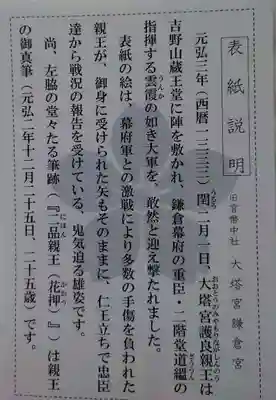 表紙説明
旧官幣中社 大塔宮鎌倉宮
元弘三年(西暦一三三三)閏二月一日、大塔宮護良親王は
吉野山蔵王堂に陣を敷かれ、鎌倉幕府の重臣・二階堂道蘊の
指揮する雲霞の如き大軍を、敢然と迎え撃たれました。
表紙の絵は、幕府軍との激戦により多数の手傷を負われた
親王が、御身に受けられた矢もそのままに、仁王立ちで忠臣
達から戦況の報告を受けている、鬼気迫る雄姿です。
尚、左脇の堂々たる筆跡、『二品親王(花押)』は親王
の御真筆(元弘二年十二月二十五日、二十五歳)です。